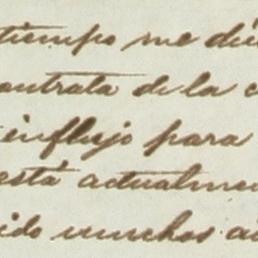 tiempo me di
ontrata de la c
influjo para
está actualmen
ido muchos a